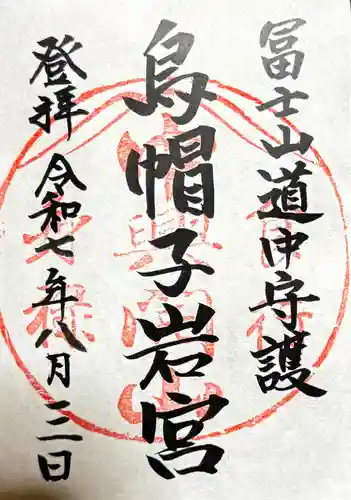 冨士山道中守護
烏帽子岩宮
登拝 令和七年八月二二日